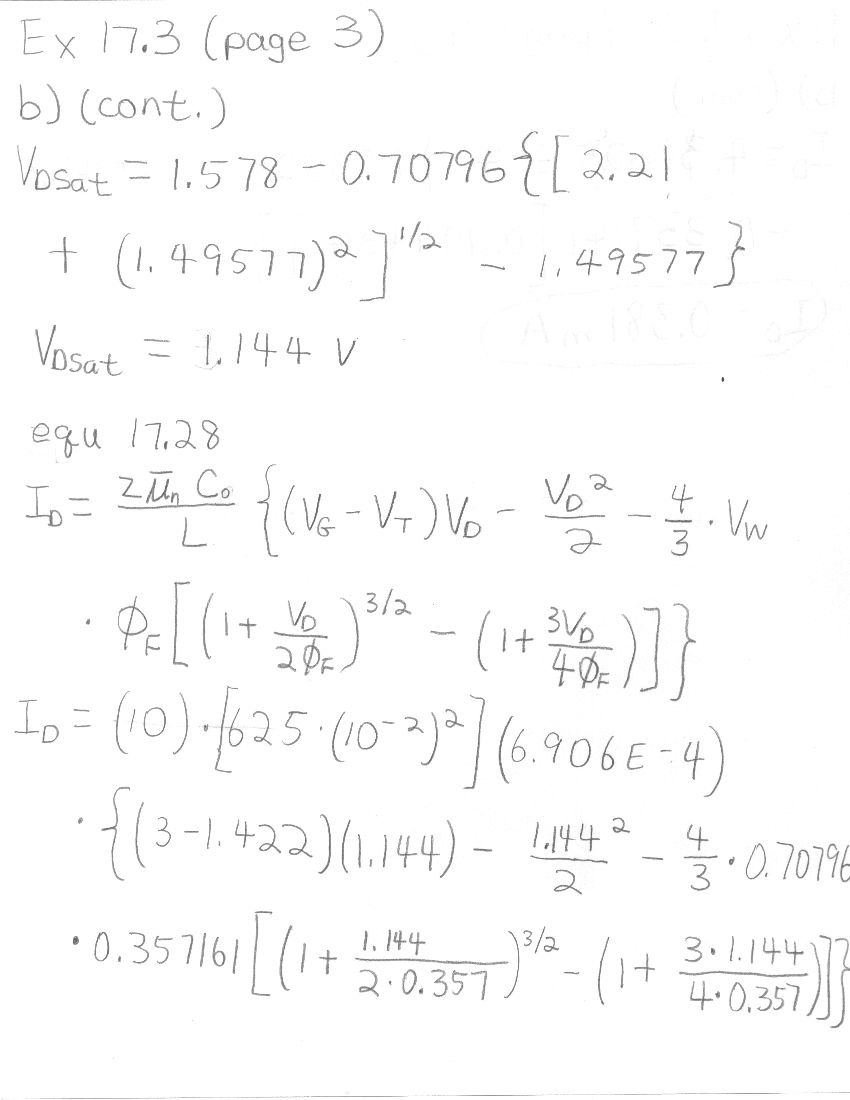 Ex 17.3 (page 3)
b) (cont.)
V_DSat = 1.578 - 0.70796{[2.21
+ (1.49577)^2]^1/2 - 1.49577}
V_DSat = 1.144 V
equ 17.28
I_D = Z μ̄_n C_o / L {(V_G - V_T)V_D - V_D^2/2 - 4/3 · V_W
· φ_F[(1 + V_D/2φ_F)^3/2 - (1 + 3V_D/4φ_F)]}
I_D = (10)·[625·(10^-2)^2](6.906E-4)
· {(3-1.422)(1.144) - 1.144^2/2 - 4/3 · 0.70796
· 0.357161[(1 + 1.144/2·0.357)^3/2 - (1 + 3·1.144/4·0.357)]}